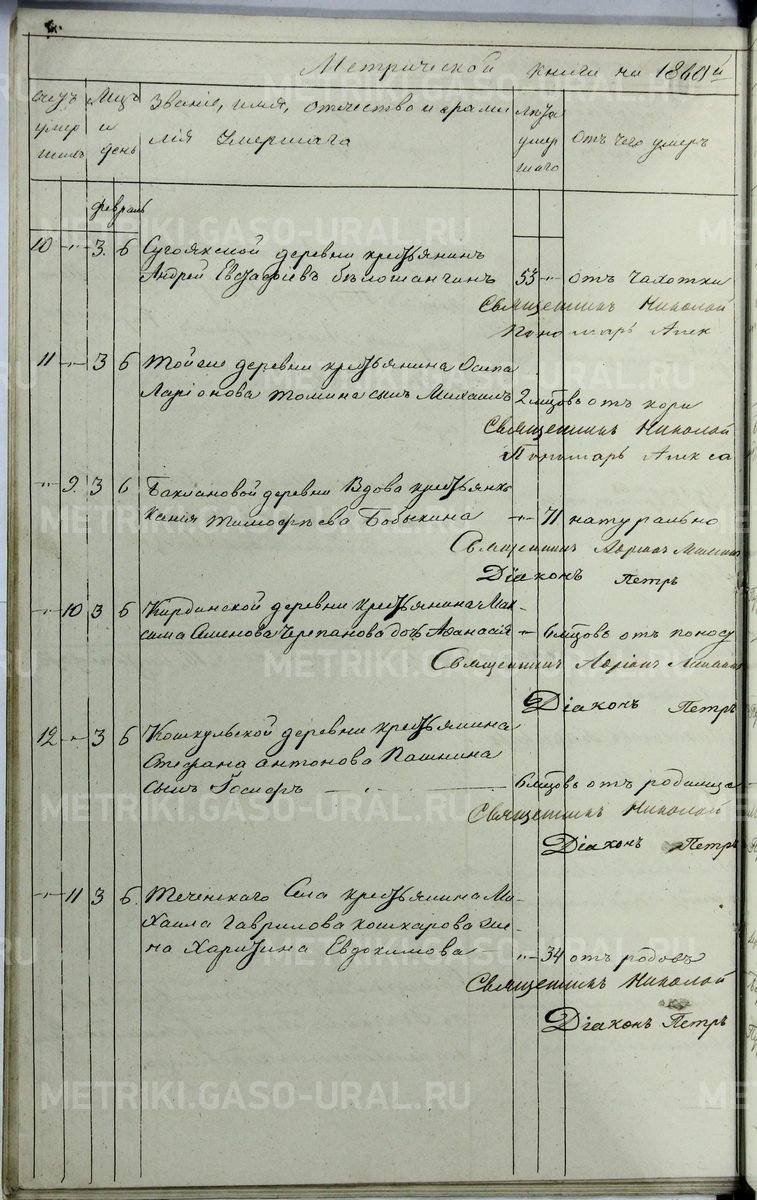 Метрической книги на 1860й
счетъ умершихъ
Мѣць и день
Званіе, имя, отечество и фамилія умершаго
лѣта умершаго
отъ чего умеръ
февраль
10 " 3. 5 Сугоякской деревни крестьянинъ
Андрей Евстафіевъ бѣлошангинъ 53 " отъ чахотки
Священникъ Николай
Пономарь Алек
11 " 3 5 Той же деревни крестьянина Осипа
Ларіонова Томина сынъ Михаилъ 2 мѣцовъ отъ кори
Священникъ Николай
Пономарь Алекса
" 9. 3 6 Баклановой деревни Вдова крестьянка
Ксенія Тимофѣева Бобыкина " 71 натурально
Священникъ Адріанъ
Діаконъ Петръ
" 10 3 5 Кирдинской деревни крестьянина Мак-
сима Семенова Черепанова дочь Афанасія " 6 мѣцовъ отъ поносу
Священникъ Адріанъ
Діаконъ Петръ
12 " 3 5 Кошкульской деревни крестьянина
Стефана антонова Пашнина
сынъ 6 мѣцовъ от родимца
Священникъ Николай
Діаконъ Петръ
" 11 3 5. Теченскаго Села крестьянина Ми-
хаила Гаврилова кошкарова же-
на Харитина Евдокимова " 34 от родовъ
Священникъ Николай
Діаконъ Петръ
METRIKI.GASO-URAL.RU